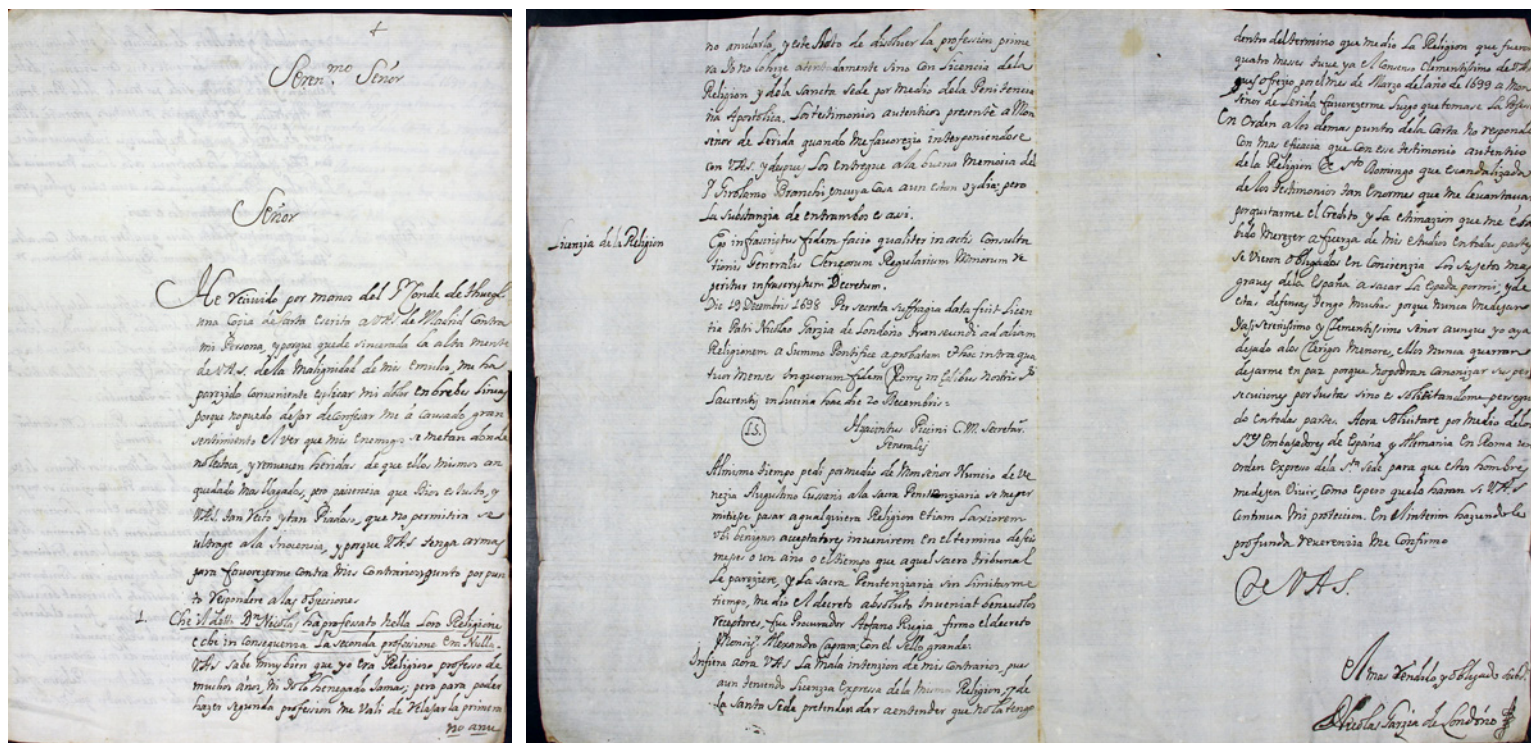 Seren.mo Señor
Señor
He reciuido por manos del P. Conde de Thueg
una Copia de Carta escrita a V.A.S. de Madrid contra
mi Persona, y porque quede sincerada la alta mente
de V.A.S. de la Malignidad de mis Emulos, me ha
parezido conveniente esplicar mi dolor en brebes lineas
porque no puedo dejar de confesar me à causado gran
sentimiento el ver que mis Enemigos se metan donde
no les toca, y renueuen heridas de que ellos mismos an
quedado mas llagados, pero paciencia que Dios es Justo, y
V.A.S. tan Recto y tan Piadoso, que no permitira se
ultrage a la Inocencia, y porque V.A.S. tenga armas
para favorezerme contra mis Contrarios, punto por pun
to respondere a las objeciones
1. Che il detto Dn Nicolas ha professato nella Loro Religione
e che in conseguenza La seconda professione era Nulla.
V.A.S. sabe muy bien que yo era Religioso professo de
muchos años, ni Yo lo he negado Jamas; pero para poder
hazer segunda profession me valì de relajar la primera
no anu
no anularla, y este Acto de disoluer la profession prime
ra Yo no lo hize atentadamente sino con Licencia de la
Religion y de la Sancta Sede por medio de la Penitencia
ria Apostolica. Los testimonios autenticos presentè a Mon
señor de Lerida quando me favorezio interponiendose
con V.A.S. y despues Los entregue a la buena Memoria del
P. Girolamo Branchi, en cuya Casa aun estan oy dia; pero
La substanzia de entrambos es asi.
Licenzia de la Religion
Ego infrascriptus fidem facio qualiter in actis Consulta
tionis Generalis Clericorum Regularium Minorum re
peritur infrascriptum Decretum.
Die 19 Decembris 1698 Per secreta suffragia data fuit Licen
tia Patri Nicolao Garzia de Londoño transeundi ad aliam
Religionem a Summo Pontifice aprobatam & hoc intra qua
tuor menses In quorum fidem Romę in Ędibus nostris Sti
Laurentij in Lucina hac die 20 Decembris:
LS.
Hyacintus Piccini C.M. Secretar.
Generalis
Al mismo tiempo pedi por medio de Monseñor Nuncio de Ve
nezia Augustino Cussani a la sacra Penitenziaria se me per
mitiese pasar a qualquiera Religion etiam Laxiorem
ubi benignos acceptatores inuenirem en el termino de seis
meses o un año o el tiempo que a aquel sacro tribunal
Le pareziere, y La sacra Penitenziaria sin limitarme
tiempo, me dio el decreto absoluto Inveniat beneuolos
receptores, fue Procurador Stefano Rugia firmo el decreto
Monsr. Alexandro Caprara, con el Sello grande.
Infiera aora V.A.S. La mala intencion de mis contrarios, pues
aun teniendo Licenzia Expressa de la misma Religion, y de
La Santa Sede pretenden dar a entender que no la tengo
dentro del termino que me dio La Religion que fueron
quatro meses tuve ya el Consenso Clementissimo de V.A.S.
pues ofrezio por el mes de Marzo del año de 1699 a Mon
Señor de Lerida favorezerme Luego que tomase La Posess
En Orden a los demas puntos de la Carta no respondo
con mas eficacia que con ese testimonio autentico
de la Religion de Sto Domingo que escandalizada
de los testimonios tan enormes que me levantauan
por quitarme el Credito y La estimazion que me è sa
bido merezer a fuerza de mis estudios en todas partes
se vieron obligados en Concienzia Los sujetos mas
graues de la España a sacar La espada por mi; y de
estas defensas tengo muchas porque nunca me dejara
Das, Serenissimo y Clementissimo Señor aunque yo aya
dejado a los Clerigos Menores, ellos nunca querran
dejarme en paz porque no podran Canonizar sus per
secuciones por Justas sino es solicitandome persegui
do en todas partes. Aora solicitare por medio de los
SSes Embajadores de España y Alemania En Roma un
orden Expreso de la Sta Sede para que estos hombres
me dejen viuir, Como espero que lo haran si V.A.S.
continua mi proteccion. En el interim haziendole
profunda reuerenzia me Confirmo
De V.A.S.
El mas rendido y obligado sieruo
Nicolas Garzia de Londoño